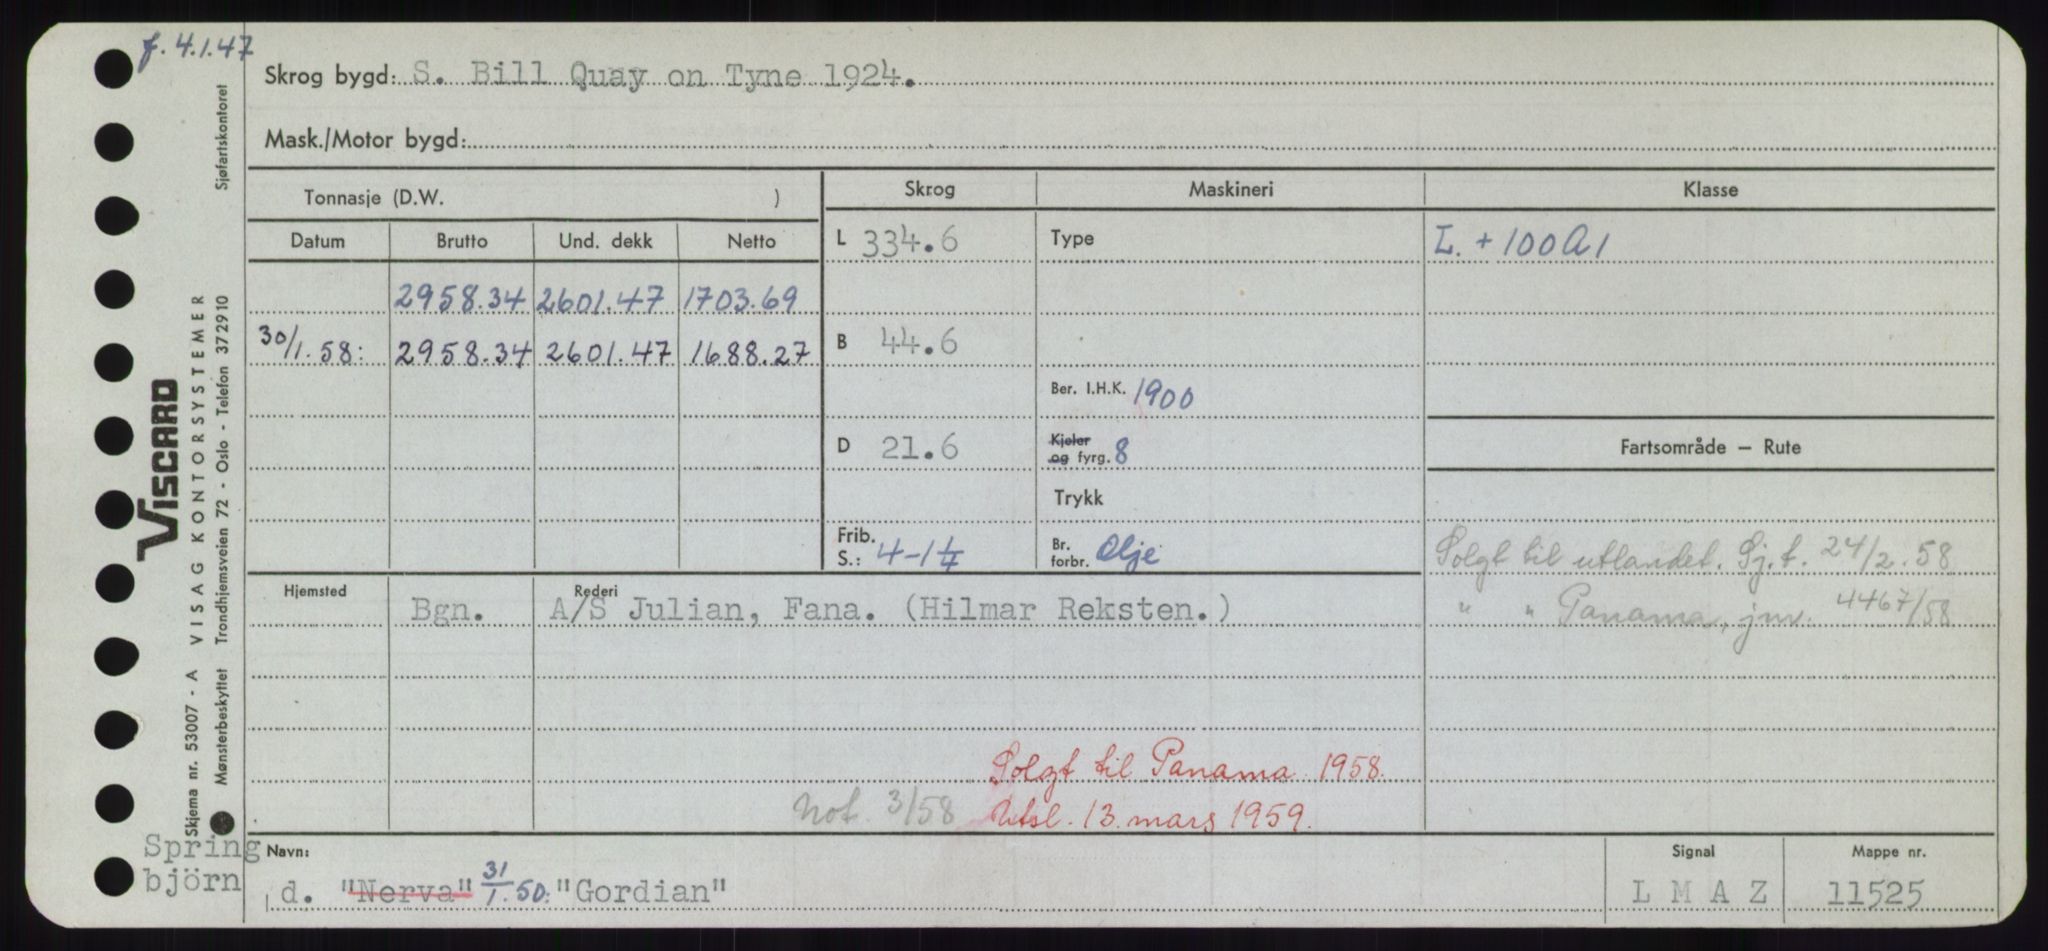 f. 4.1.47
Skrog bygd: S. Bill Quay on Tyne 1924.
Mask./Motor bygd:
Tonnasje (D.W. )
Skrog
Maskineri
Klasse
Datum Brutto Und. dekk Netto
L 334.6
Type
L. + 100 A 1
2958.34 2601.47 1703.69
30/1.58: 2958.34 2601.47 1688.27
B 44.6
Ber. I.H.K. 1900
D 21.6
Kjeler
og fyrg. 8
Fartsområde — Rute
Trykk
Frib.
S.: 4-1¼
Br.
forbr. Olje
Solgt til utlandet. Sj.f. 24/2.58
" " Panama, jnr. 4467/58
Hjemsted Rederi
Bgn. A/S Julian, Fana. (Hilmar Reksten.)
Solgt til Panama 1958.
Not. 3/58 Utsl. 13. mars 1959.
Spring
björn
Navn:
d. "Nerva" 31/1.50: "Gordian"
Signal
L M A Z
Mappe nr.
11525
VISCARD
Skjema nr. 53007 - A VISAG KONTORSYSTEMER
Mønsterbeskyttet Trondhjemsveien 72 - Oslo - Telefon 372910 Sjøfartskontoret